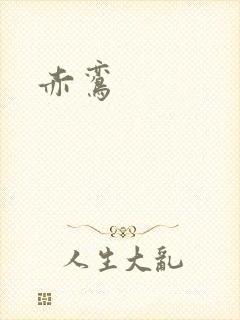 赤鸾
人生大亂